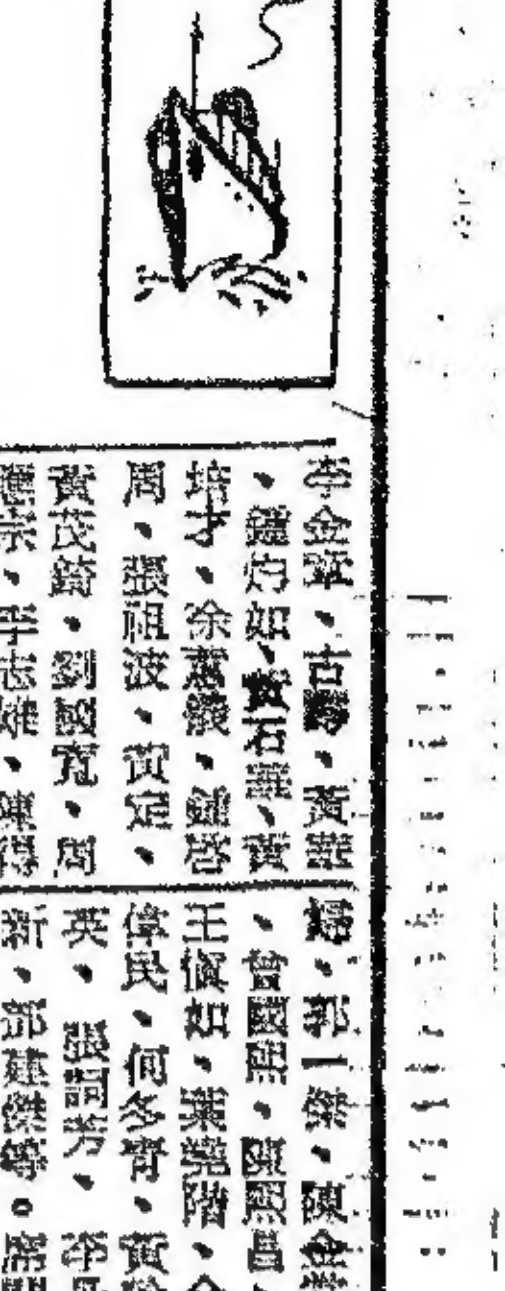 李金章、古　、黃華
、鍾灼如、　石華、黃
培才、余　　、鍾啓
周、張祖波、黃定、
黃茂錡、劉國寬、周
　宗、李志雄、陳得
　、郭一傑、陳金
、曾國熙、陳熙昌、
王愼如、葉堯階、
偉民、何冬青、黃
英、張詞芳、李
新、鄧建傑等。席